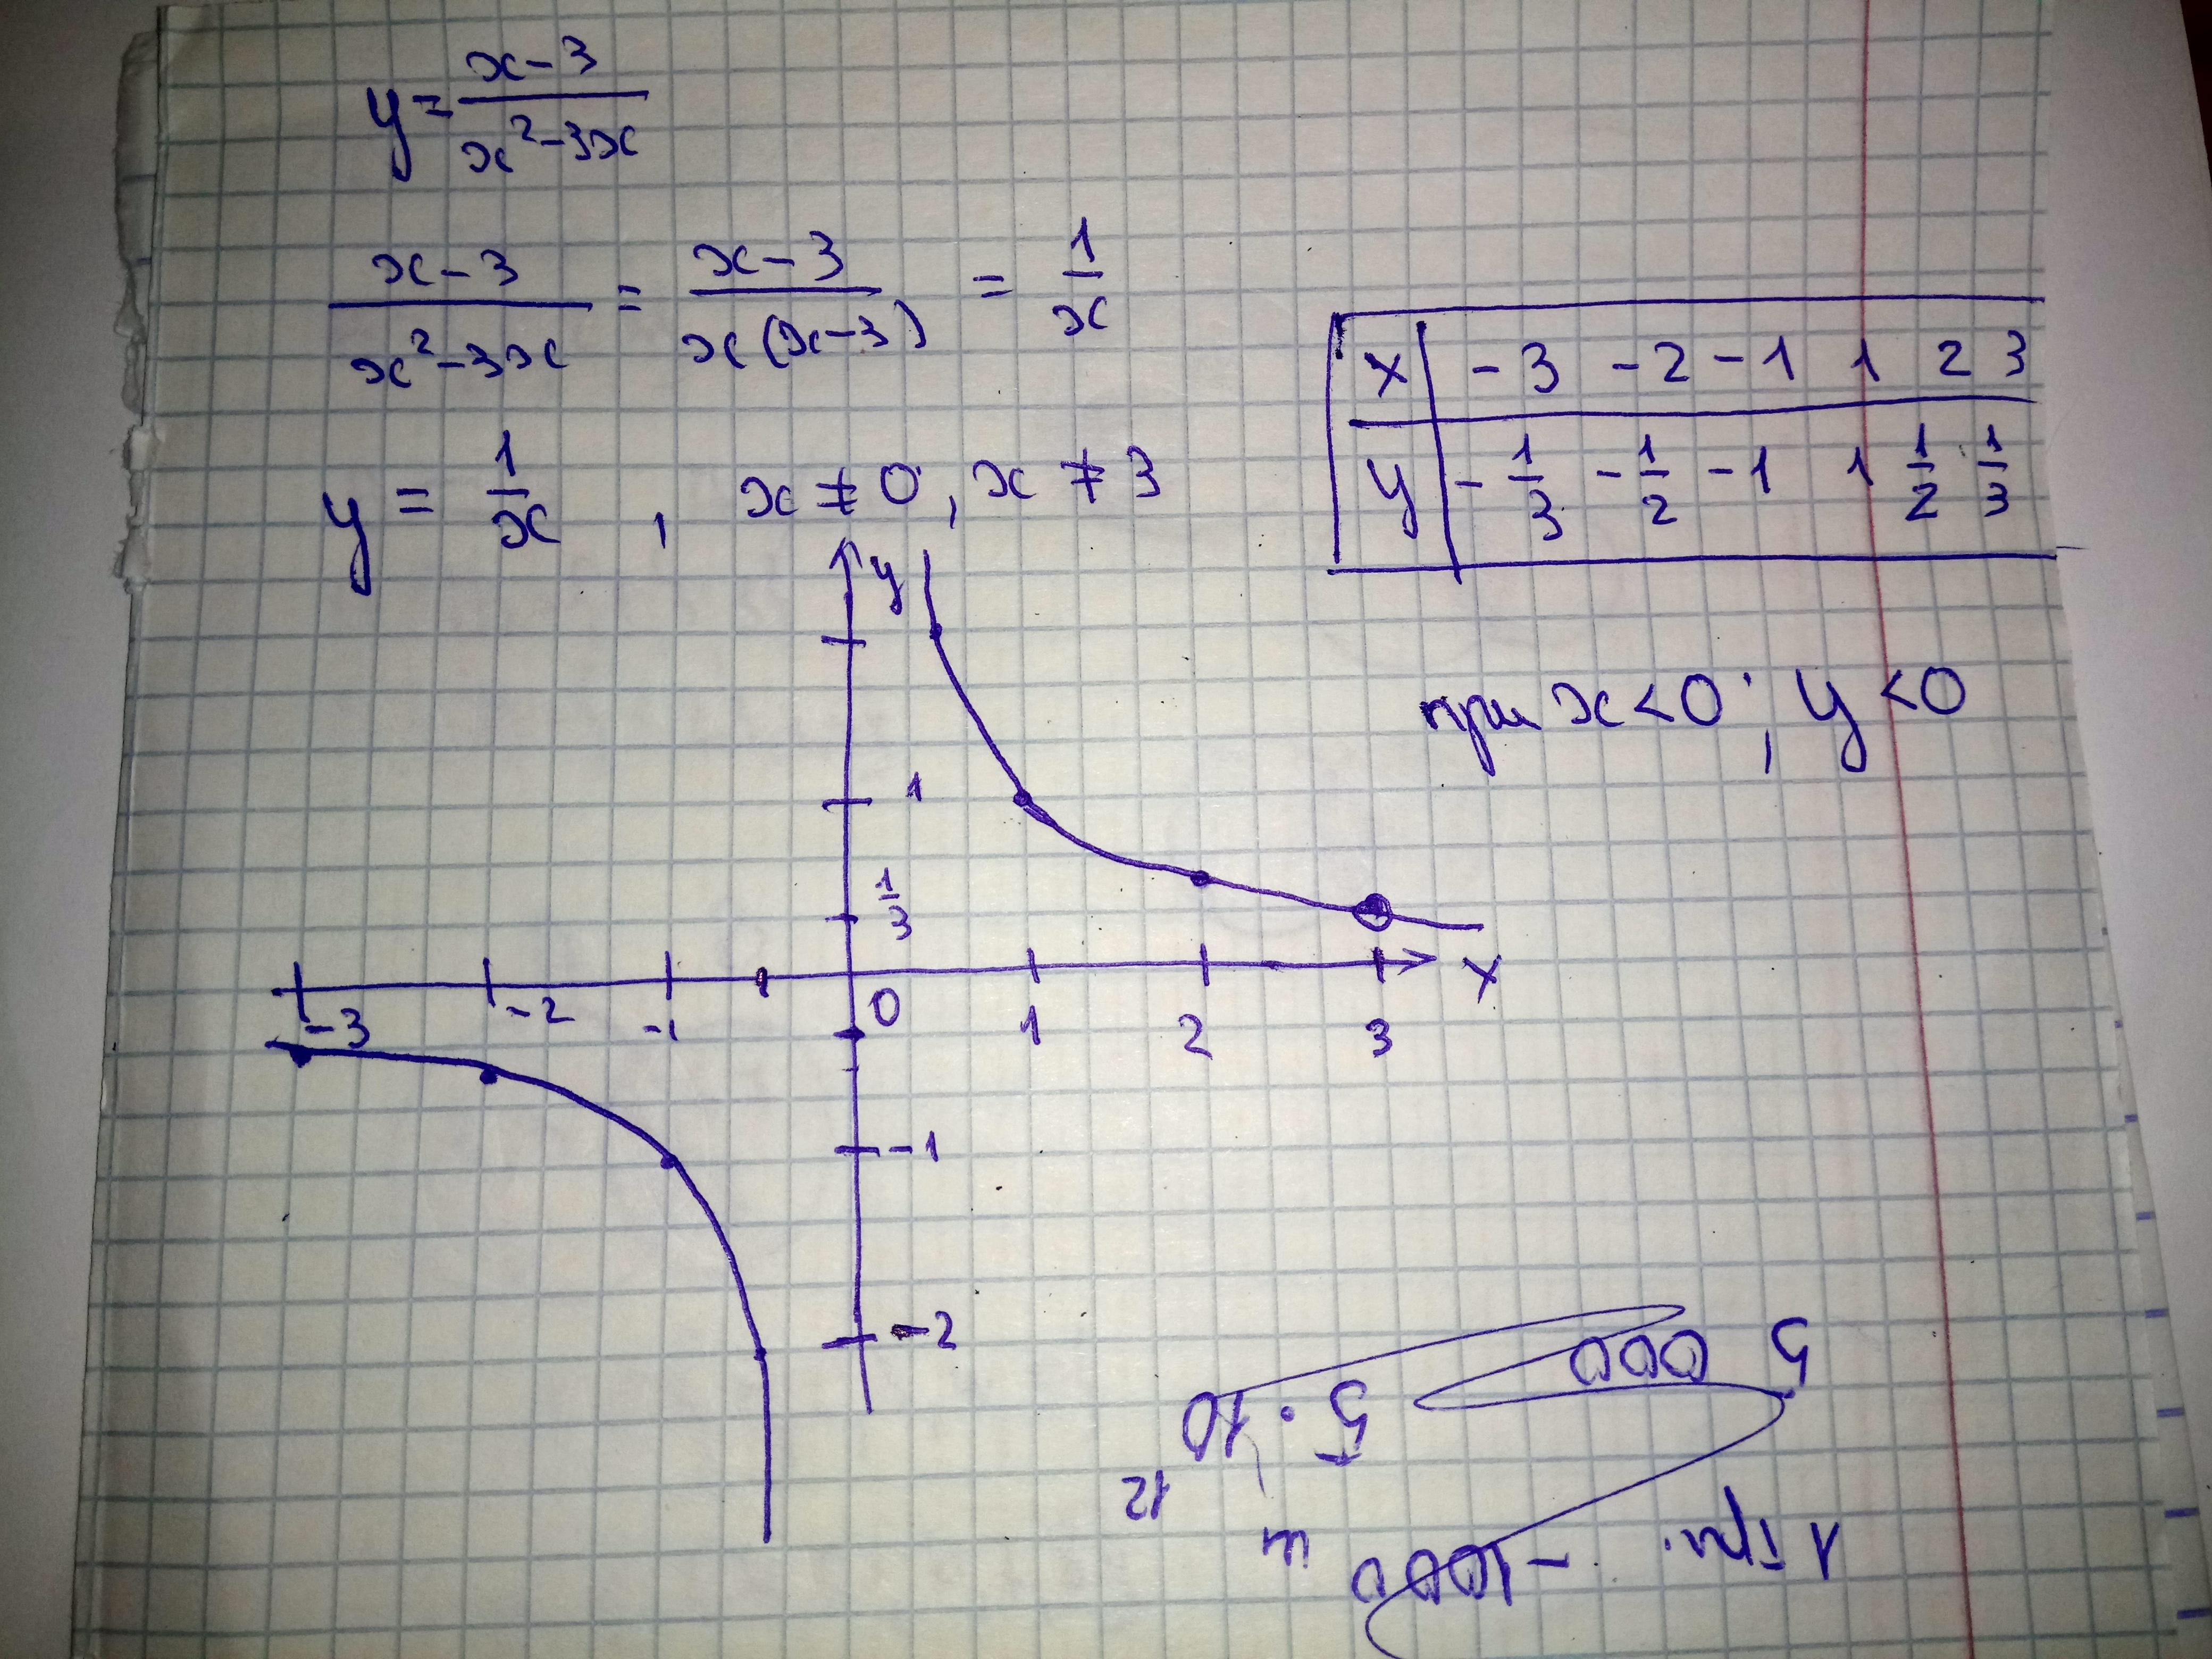 y = (x-3)/(x²-3x)
(x-3)/(x²-3x) = (x-3)/(x(x-3)) = 1/x
y = 1/x, x ≠ 0, x ≠ 3
x -3 -2 -1 1 2 3
y -1/3 -1/2 -1 1 1/2 1/3
при x<0; y<0
y
1
1/3
x
-3 -2 -1 0 1 2 3
-1
-2
1 трл. - 1000 м
5 000 5·10¹²